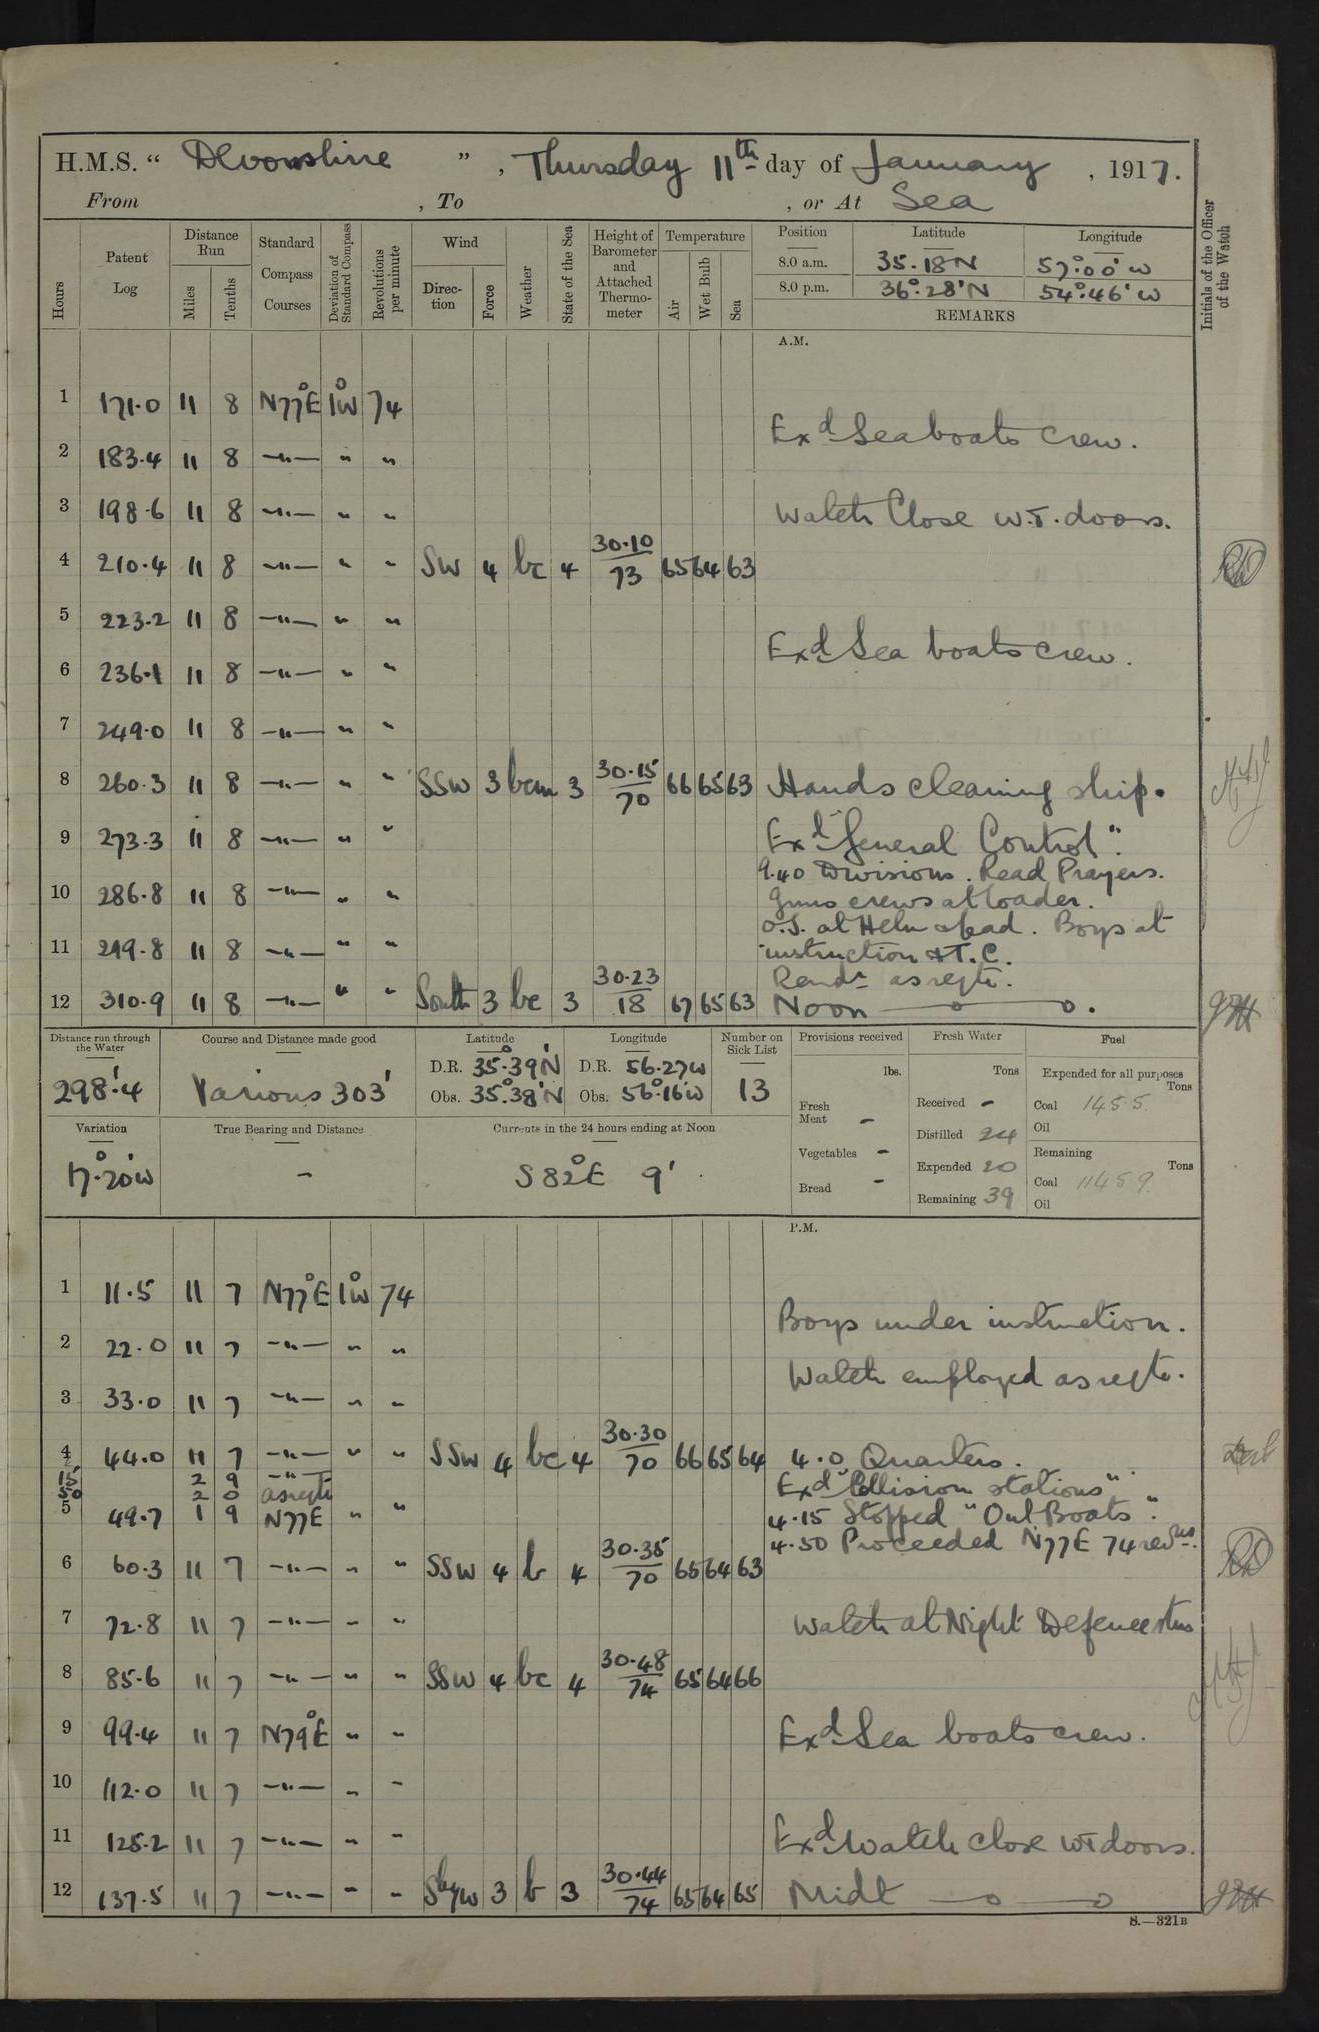 H.M.S. “ Devonshire ”, Thursday 11th day of January, 1917.
From , To , or At Sea
Hours
Patent Log
Distance Run
Miles
Tenths
Standard Compass Courses
Deviation of Standard Compass
Revolutions per minute
Wind
Direction
Force
Weather
State of the Sea
Height of Barometer and Attached Thermometer
Temperature
Air
Wet Bulb
Sea
Position Latitude Longitude
8.0 a.m. 35.18 N 57°.00' W
8.0 p.m. 36°.28' N 54°.46' W
REMARKS
Initials of the Officer of the Watch
A.M.
1 171.0 11 8 N77°E 1°W 74
Exd Seaboats crew.
2 183.4 11 8 —"— " "
3 198.6 11 8 —"— " " Watch Close W.T. doors.
4 210.4 11 8 —"— " " SW 4 bc 4 30.10/73 65 64 63
5 223.2 11 8 —"— " "
Exd Sea boats crew.
6 236.1 11 8 —"— " "
7 249.0 11 8 —"— " "
8 260.3 11 8 —"— " " SSW 3 bcm 3 30.15/70 66 65 63 Hands cleaning ship.
9 273.3 11 8 —"— " " Exd "General Control".
9.40 Divisions. Read Prayers.
10 286.8 11 8 —"— " " Guns crews at loader.
O.S. at Helm & lead. Boys at
11 299.8 11 8 —"— " " instruction & T.C.
Remdr as reqte.
12 310.9 11 8 —"— " " South 3 bc 3 30.23/18 67 65 63 Noon
Distance run through the Water
298'.4
Course and Distance made good
Various 303'
Latitude
D.R. 35°.39' N
Obs. 35°.38' N
Longitude
D.R. 56.27 W
Obs. 56°.16' W
Number on Sick List
13
Provisions received
lbs.
Fresh Meat -
Vegetables -
Bread -
Fresh Water
Tons
Received -
Distilled 24
Expended 20
Remaining 39
Fuel
Expended for all purposes
Tons
Coal 145.5
Oil
Remaining
Tons
Coal 1145 9
Oil
Variation
17°.20' W
True Bearing and Distance
-
Currents in the 24 hours ending at Noon
S 82°E 9'
P.M.
1 11.5 11 7 N77°E 1°W 74
Boys under instruction.
2 22.0 11 7 —"— " "
Watch employed as reqte.
3 33.0 11 7 —"— " "
4 44.0 11 7 —"— " " SSW 4 bc 4 30.30/70 66 65 64 4.0 Quarters.
15 2 9 —"— Exd "Collision stations".
50 2 0 as reqte
5 49.7 1 9 N77E " " 4.15 Stopped "Out Boats".
4.50 Proceeded N77E 74 revns.
6 60.3 11 7 —"— " " SSW 4 b 4 30.35/70 65 64 63
7 72.8 11 7 —"— " " Watch at Night Defence stns
8 85.6 11 7 —"— " " SSW 4 bc 4 30.48/74 65 64 66
9 99.4 11 7 N79°E " " Exd Sea boats crew.
10 112.0 11 7 —"— " "
11 125.2 11 7 —"— " " Exd Watch close WT doors.
12 137.5 11 7 —"— " " SbyW 3 b 3 30.44/74 65 64 65 Midt
S.—321B